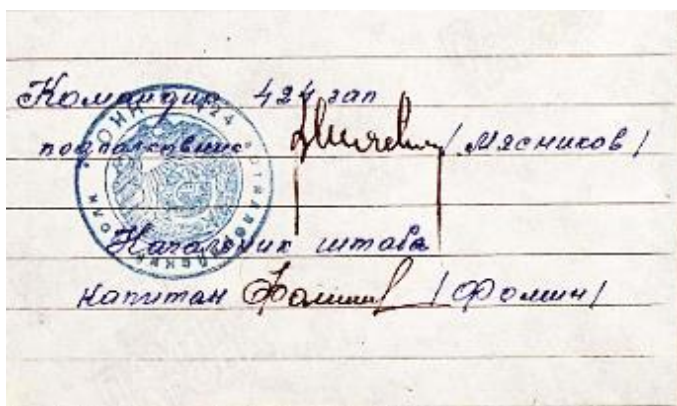 Командир 424 зап
подполковник /Мясников/
Начальник штаба
капитан Фомин /Фомин/